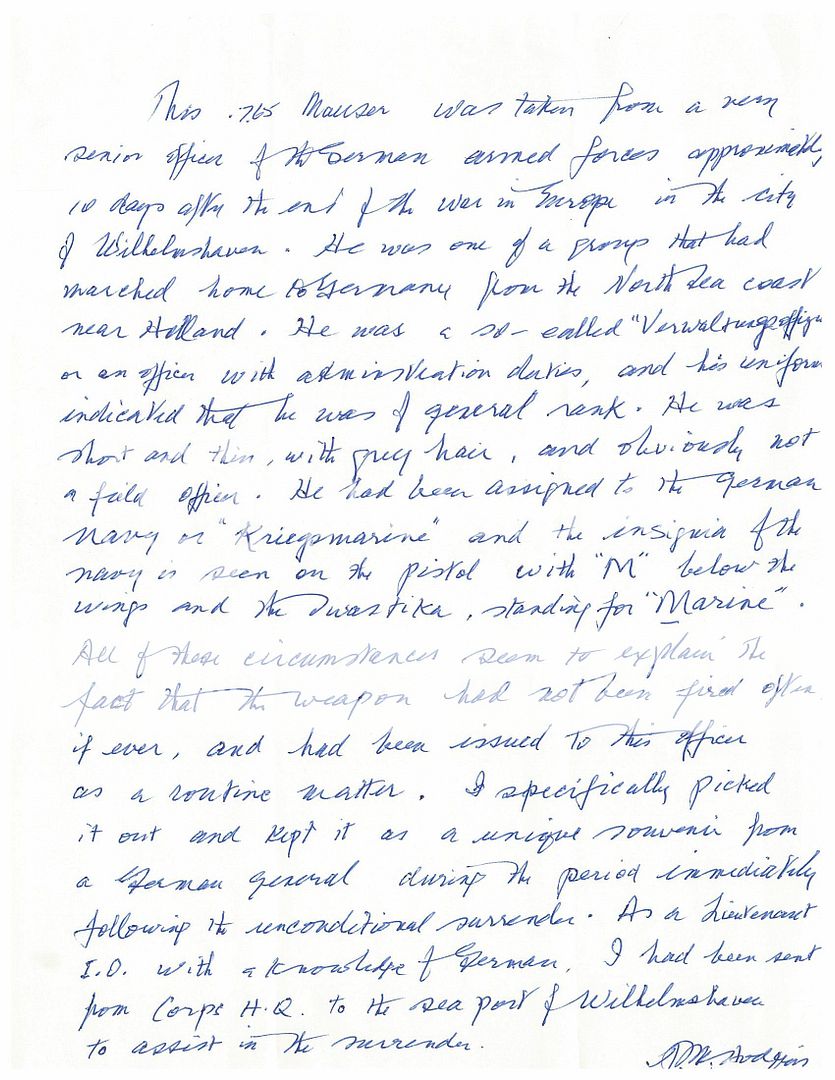 This .765 Mauser was taken from a very
senior officer of the German armed forces approximately
10 days after the end of the war in Europe in the city
of Wilhelmshaven. He was one of a group that had
marched home to Germany from the North Sea coast
near Holland. He was a so-called "Verwaltungsoffizier
or an officer with administration duties, and his uniform
indicated that he was of general rank. He was
short and thin, with grey hair, and obviously not
a field officer. He had been assigned to the German
navy or "Kriegsmarine" and the insignia of the
navy is seen on the pistol with "M" below the
wings and the swastika, standing for "Marine".
All of these circumstances seem to explain the
fact that the weapon had not been fired often
if ever, and had been issued to this officer
as a routine matter. I specifically picked
it out and kept it as a unique souvenir from
a German general during the period immediately
following the unconditional surrender. As a Lieutenant
I.O. with a knowledge of German, I had been sent
from Corps H.Q. to the sea port of Wilhelmshaven
to assist in the surrender.
Hodgins